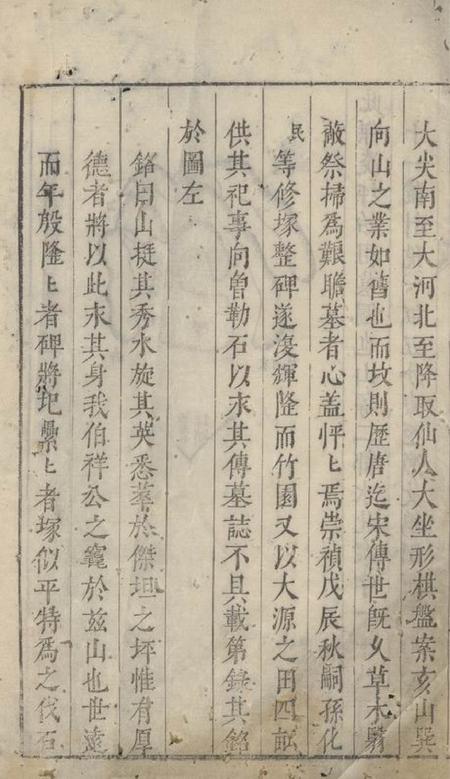 大尖南至大河北至降取仙人大坐形棋盤案亥山巽
向山之業如舊也而坟則歷唐迄宋傳世旣久草木翳
蔽祭掃爲艱瞻墓者心盖怦匕焉崇禎戊辰秋嗣孫化
民等修塚整碑遂復輝隆而竹園又以大源之田四畝
供其祀事向曽勒石以求其傳墓誌不具載第錄其銘
於圖左
銘曰山挺其秀水旋其英悉萃於傑坦之坪惟有厚
德者將以此求其身我伯祥公之窀於兹山也世遠
而年殷隆匕者碑將圯纍匕者塚似平特爲之伐石